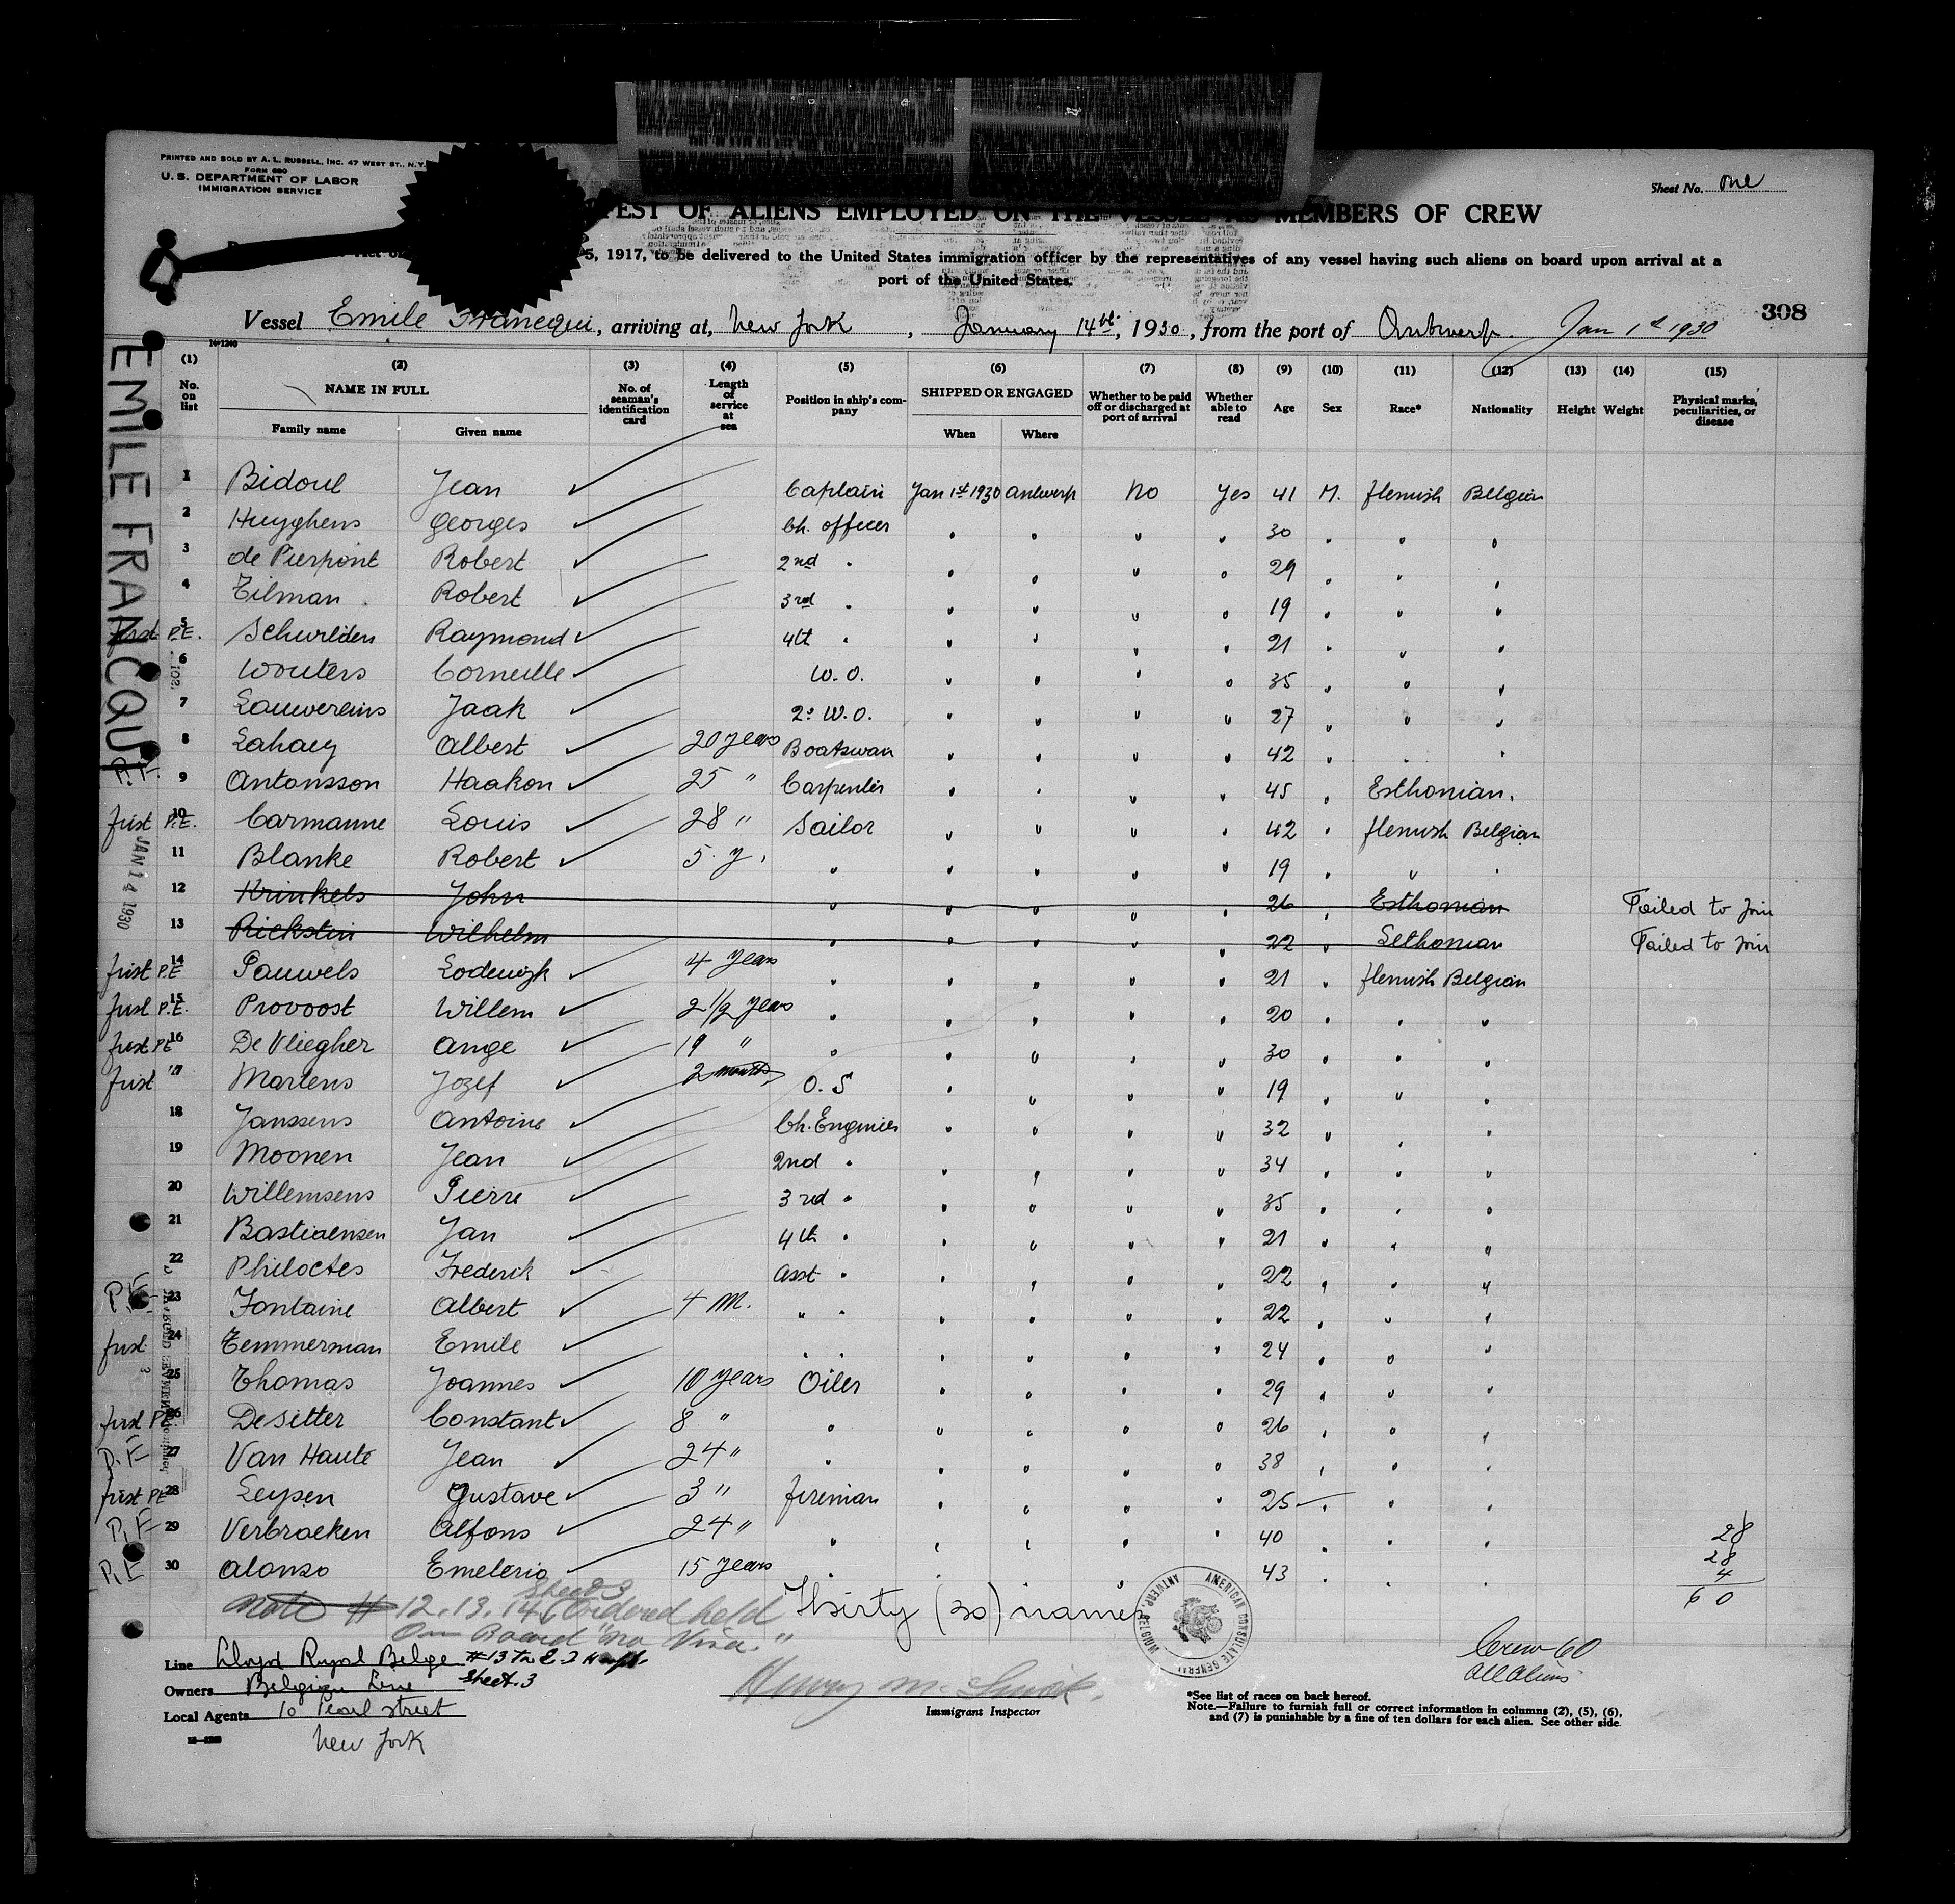 PRINTED AND SOLD BY A. L. RUSSELL, INC. 47 WEST ST., N.Y.
FORM 680
U. S. DEPARTMENT OF LABOR
IMMIGRATION SERVICE
Sheet No. One
OF ALIENS EMPLOYED ON THE VESSEL AS MEMBERS OF CREW
5, 1917, to be delivered to the United States immigration officer by the representatives of any vessel having such aliens on board upon arrival at a
port of the United States.
308
Vessel Emile Francqui, arriving at, New York, January 14th, 1930, from the port of Antwerp. Jan 1st 1930
EMILE FRANCQUI
JAN 14 1930
(1) (2) (3) (4) (5) (6) (7) (8) (9) (10) (11) (12) (13) (14) (15)
No. on list NAME IN FULL No. of seaman's identification card Length of service at sea Position in ship's company SHIPPED OR ENGAGED Whether to be paid off or discharged at port of arrival Whether able to read Age Sex Race* Nationality Height Weight Physical marks, peculiarities, or disease
Family name Given name When Where
1 Bidoul Jean Captain Jan 1st 1930 Antwerp No Yes 41 M. flemish Belgian
2 Huyghens Georges Ch. officer " " " " 30 " " "
3 de Pierpont Robert 2nd " " " " " 29 " " "
4 Tilman Robert 3rd " " " " " 19 " " "
first P.E. 5 Schurlden Raymond 4th " " " " " 21 " " "
6 Wouters Corneille W.O. " " " " 35 " " "
7 Lauwereins Jaak 2e W.O. " " " " 27 " " "
8 Lahaey Albert 20 years Boatswan " " " " 42 " " "
P.E. 9 Antonsson Haakon 25 " Carpenter " " " " 45 " Esthonian.
first P.E. 10 Carmanne Louis 28 " Sailor " " " " 42 " flemish Belgian
11 Blanke Robert 5 y. " " " " " 19 " " "
12 Krinkels John " " " " " 26 Esthonian Failed to join
13 Rickstin Wilhelm " " " " " 22 " Lethonian Failed to join
first P.E 14 Pauwels Lodewyk 4 years " " " " " 21 " flemish Belgian
first P.E. 15 Provoost Willem 2 1/2 years " " " " " 20 " " "
first PE 16 De Vliegher Ange 19 " " " " " " 30 " " "
first 17 Martens Jozef 2 months O.S " " " " 19 " " "
18 Janssens Antoine Ch. Engineer " " " " 32 " " "
19 Moonen Jean 2nd " " " " " 34 " " "
20 Willemsens Pierre 3rd " " " " " 35 " " "
21 Bastiaensen Jan 4th " " " " " 21 " " "
22 Philoctes Frederik Asst " " " " " 22 " " "
P.E 23 Fontaine Albert 4 M. " " " " " " 22 " " "
first 24 Temmerman Emile " " " " " " 24 " " "
25 Thomas Joannes 10 years Oiler " " " " 29 " " "
first PE. 26 De Sitter Constant 8 " " " " " " 26 " " "
P.E 27 Van Haute Jean 24 " " " " " " 38 " " "
first PE 28 Leysen Gustave 3 " fireman " " " " 25 " " "
P.E 29 Verbraeken Alfons 24 " " " " " " 40 " " "
P.E 30 Alonso Emelerio 15 years " " " " " 43 " " "
28
28
4
60
Sheet 3
Note # 12.13.14 Ordered held Thirty (30) names
On Board "no Visa."
AMERICAN CONSULATE GENERAL ANTWERP, BELGIUM
Line Lloyd Royal Belge
Sheet.3
Owners Belgian Line
Local Agents 10 Pearl Street
New York
Immigrant Inspector
Crew 60
All Aliens
*See list of races on back hereof.
Note.—Failure to furnish full or correct information in columns (2), (5), (6),
and (7) is punishable by a fine of ten dollars for each alien. See other side.